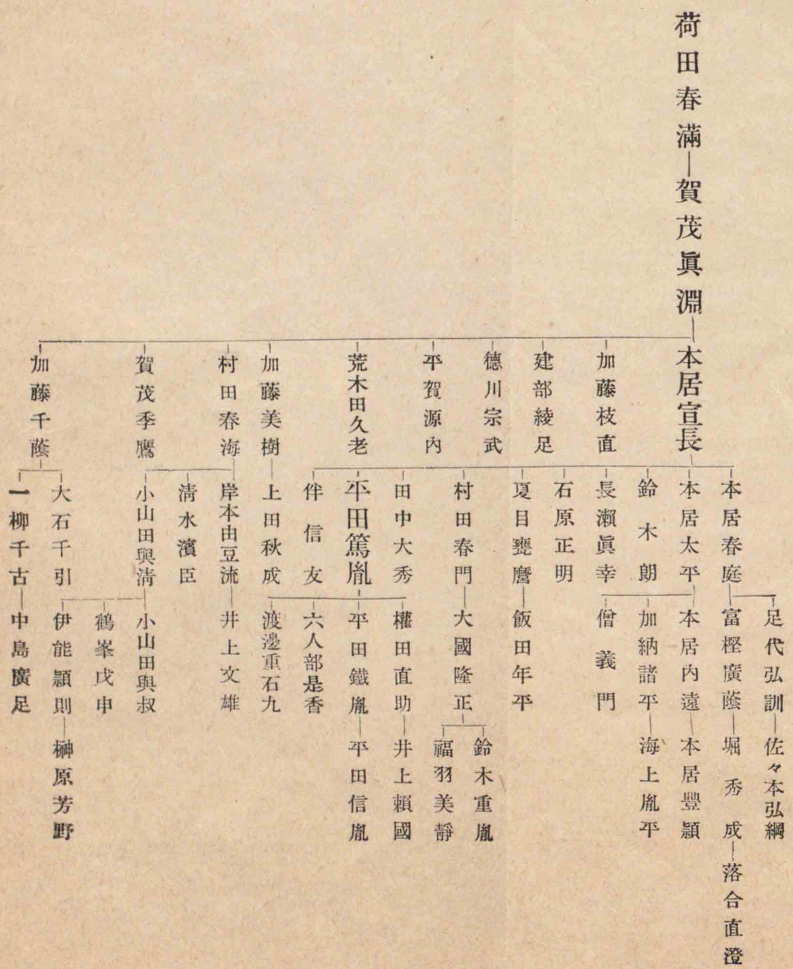 荷田春滿―賀茂眞淵―本居宣長
足代弘訓―佐々木弘綱
本居春庭―富樫廣蔭―堀秀成―落合直澄
本居太平―本居内遠―本居豐頴
加納諸平―海上胤平
鈴木朗
僧義門
加藤枝直
長瀨眞幸
石原正明
建部綾足
夏目甕麿―飯田年平
德川宗武
鈴木重胤
村田春門―大國隆正
福羽美靜
平賀源内
田中大秀
權田直助―井上賴國
荒木田久老
平田篤胤―平田鐵胤―平田信胤
六人部是香
伴信友
渡邊重石丸
加藤美樹―上田秋成
村田春海―岸本由豆流―井上文雄
淸水濱臣
賀茂季鷹
小山田與淸―小山田與叔
鶴峯戊申
加藤千蔭
大石千引―伊能頴則―榊原芳野
一柳千古―中島廣足